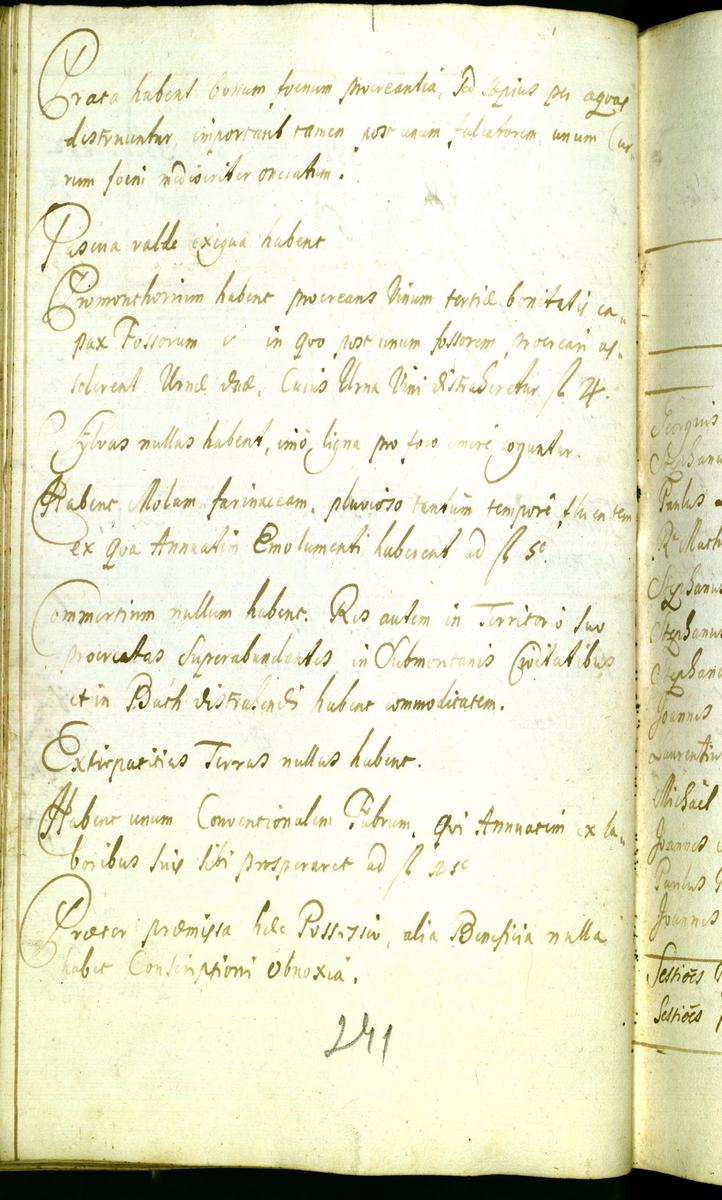 Prata habent bonum foenum procreantia, sed sæpius per aquas
destruuntur, important tamen post unum falcatorem unum Cur-
rum foeni mediocriter oneratum.
Pascua valde exigua habent
Promonthorium habent procreans Vinum tertiæ bonitatis ca-
pax Fossorum in quo post unum fossorem procreari as-
solerent Urnæ duæ, Cuius Urna Vini distraheretur fl 4.
Sylvas nullas habent, imò ligna pro foco emere coguntur.
Habent Molam farinaceam, pluvioso tantùm tempore fluentem
ex qua Annuatim Emolumenti haberent ad fl 5
Commertium nullum habent. Res autem in Territorio suo
procreatas superabundantes in Submontanis Civitatibus
et in Bath distrahendi habent commoditatem.
Extirpatitias Terras nullas habent.
Habent unum Conventionalem Fabrum, qui Annuatim ex la-
boribus suis sibi prosperaret ad fl
Præter præmissa hæc Possessio, alia Beneficia nulla
habet Conscriptioni obnoxia.
241
Georgius
Stephanus
Paulus
Stephanus
Stephanus
Joannes
Michaël
Joannes
Paulus
Joannes
Sestiões
Sestiões